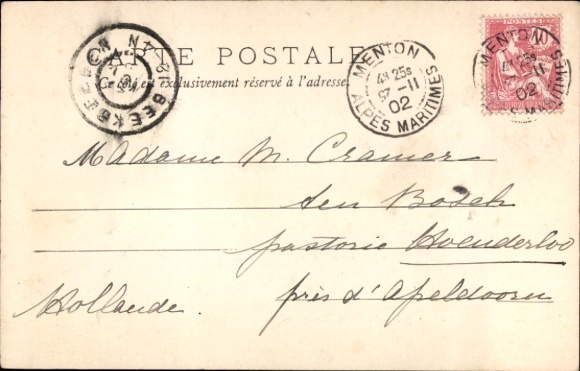 CARTE POSTALE
Ce côté est exclusivement réservé à l'adresse
MENTON
4H 25S
27-11
02
ALPES MARITIMES
POSTES
MENTON
02
MARITIMES
Madame M. Cramer
ten Bosch
pastorie Hoenderloo
près d'Apeldoorn
Hollande.